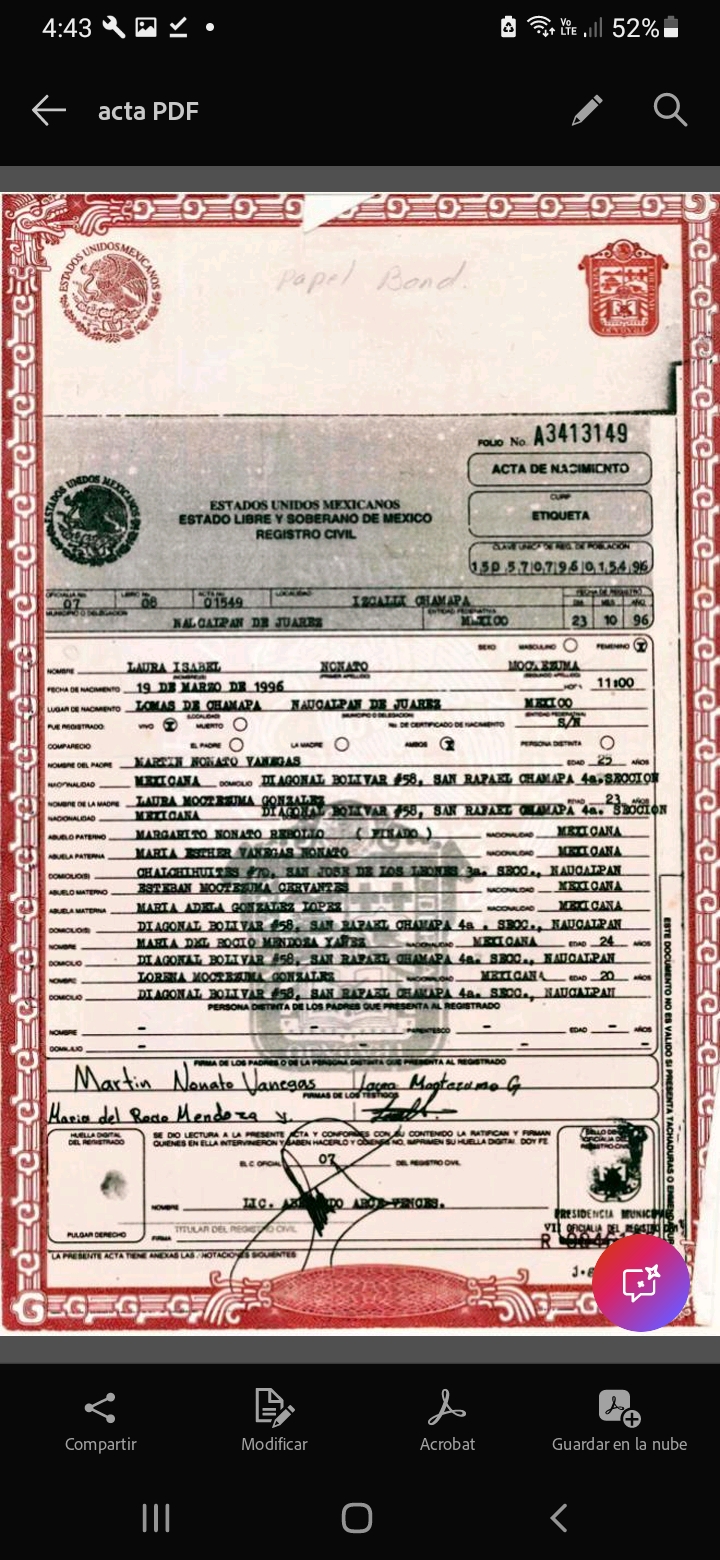 4:43
Vo LTE 52%
acta PDF
ESTADOS UNIDOS MEXICANOS
Papel Bond.
FOLIO No. A3413149
ACTA DE NACIMIENTO
CURP
ETIQUETA
CLAVE UNICA DE REG. DE POBLACION
ESTADOS UNIDOS MEXICANOS
ESTADOS UNIDOS MEXICANOS
ESTADO LIBRE Y SOBERANO DE MEXICO
REGISTRO CIVIL
OFICIALIA No. LIBRO No. ACTA No. LOCALIDAD FECHA DE REGISTRO
07 08 01549 IZCALLI CHAMAPA DIA MES AÑO
MUNICIPIO O DELEGACION ENTIDAD FEDERATIVA
NALCALPAN DE JUAREZ MEXICO 23 10 96
SEXO MASCULINO FEMENINO X
NOMBRE LAURA ISABEL NONATO MOCTEZUMA
(NOMBRE(S)) (PRIMER APELLIDO) (SEGUNDO APELLIDO)
FECHA DE NACIMIENTO 19 DE MARZO DE 1996 11:00
LUGAR DE NACIMIENTO LOMAS DE CHAMAPA NAUCALPAN DE JUAREZ MEXICO
(LOCALIDAD) (MUNICIPIO O DELEGACION) (ENTIDAD FEDERATIVA)
FUE REGISTRADO: VIVO X MUERTO No. DE CERTIFICADO DE NACIMIENTO S/N
COMPARECIO EL PADRE LA MADRE AMBOS X PERSONA DISTINTA
NOMBRE DEL PADRE MARTIN NONATO VANEGAS EDAD 25 AÑOS
NACIONALIDAD MEXICANA DOMICILIO DIAGONAL BOLIVAR #58, SAN RAFAEL CHAMAPA 4a.SECCION
NOMBRE DE LA MADRE LAURA MOCTEZUMA GONZALEZ EDAD 23 AÑOS
NACIONALIDAD MEXICANA DIAGONAL BOLIVAR #58, SAN RAFAEL CHAMAPA 4a. SECCION
ABUELO PATERNO MARGARITO NONATO REBOLLO ( FINADO ) NACIONALIDAD MEXICANA
ABUELA PATERNA MARIA ESTHER VANEGAS NONATO NACIONALIDAD MEXICANA
DOMICILIO(S) CHALCHIHUITES #70, SAN JOSE DE LOS LEONES 3a. SECC., NAUCALPAN
ABUELO MATERNO ESTEBAN MOCTEZUMA CERVANTES NACIONALIDAD MEXICANA
ABUELA MATERNA MARIA ADELA GONZALEZ LOPEZ NACIONALIDAD MEXICANA
DOMICILIO(S) DIAGONAL BOLIVAR #58, SAN RAFAEL CHAMAPA 4a . SECC., NAUCALPAN
NOMBRE MARIA DEL ROCIO MENDOZA YAÑEZ NACIONALIDAD MEXICANA EDAD 24 AÑOS
DOMICILIO DIAGONAL BOLIVAR #58, SAN RAFAEL CHAMAPA 4a. SECC., NAUCALPAN
NOMBRE LORENA MOCTEZUMA GONZALEZ NACIONALIDAD MEXICANA EDAD 20 AÑOS
DOMICILIO DIAGONAL BOLIVAR #58, SAN RAFAEL CHAMAPA 4a. SECC., NAUCALPAN
PERSONA DISTINTA DE LOS PADRES QUE PRESENTA AL REGISTRADO
NOMBRE - - PARENTESCO - EDAD - AÑOS
DOMICILIO - - - -
FIRMA DE LOS PADRES O DE LA PERSONA DISTINTA QUE PRESENTA AL REGISTRADO
Martin Nonato Vanegas
FIRMAS DE LOS TESTIGOS
Maria del Rocio Mendoza y.
HUELLA DIGITAL DEL REGISTRADO
SE DIO LECTURA A LA PRESENTE ACTA Y CONFORMES CON SU CONTENIDO LA RATIFICAN Y FIRMAN
QUIENES EN ELLA INTERVINIERON Y SABEN HACERLO Y QUIENES NO, IMPRIMEN SU HUELLA DIGITAL. DOY FE.
EL C. OFICIAL 07 DEL REGISTRO CIVIL
NOMBRE LIC.
PULGAR DERECHO
TITULAR DEL REGISTRO CIVIL
FIRMA
PRESIDENCIA MUNICIPAL
VII OFICIALIA DEL REGISTRO
LA PRESENTE ACTA TIENE ANEXAS LAS NOTACIONES SIGUIENTES
ESTE DOCUMENTO NO ES VALIDO SI PRESENTA TACHADURAS O
Compartir Modificar Acrobat Guardar en la nube